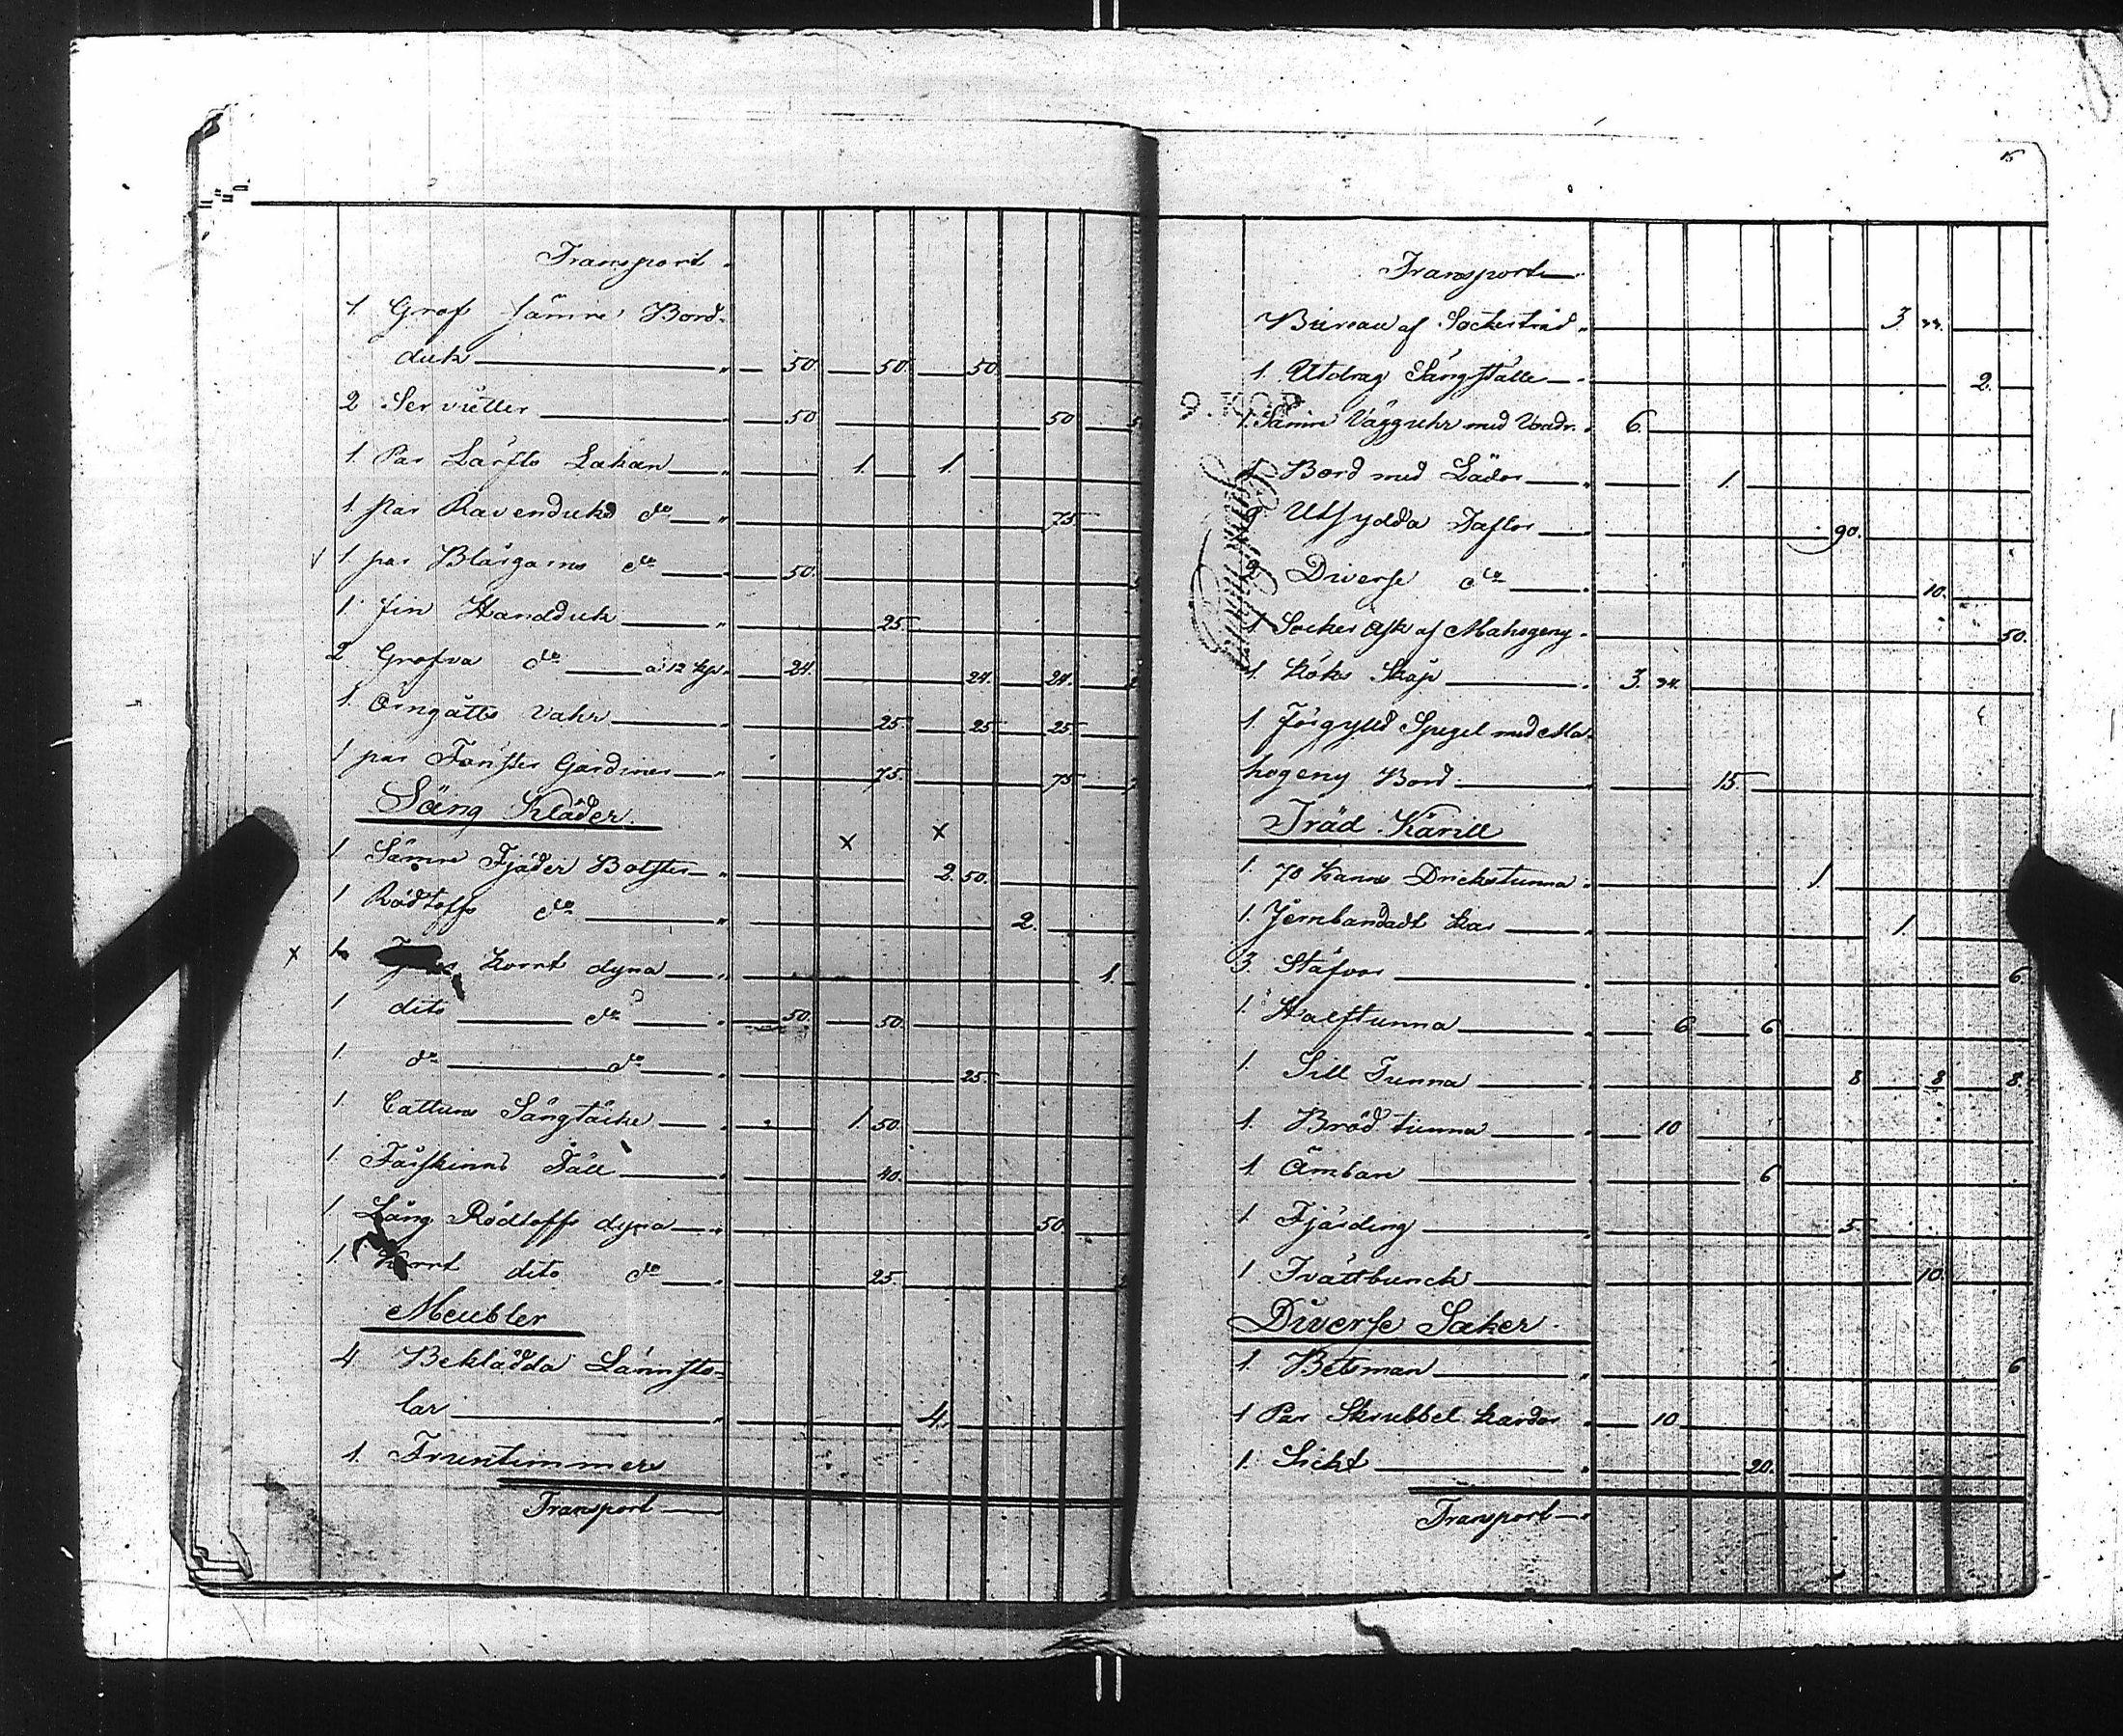 Transport
1 Grof sämre Bord-
duk 50. 50. 50.
2 Servietter 50 50
1. Par Lärfts Lakan 1. 1.
1. par Ravenduks do 75
√ 1 par Blårgarns do 50.
1. fin Handduk 25.
2 Grofva do a 12 kp. 24. 24. 24.
1. Örngåtts Vahr 25. 25 25
1 par Fönster Gardiner 75. 75
Säng Kläder.
x x
1 Sämre Fjäder Bolster 2. 50.
1 Rödtofs do 2.
x 1 Kort dyna 1.
1 dito do 50. 50.
1. do do 25.
1. Cattuns Sängtäcke 1. 50.
1. Fårskinns Fäll 40.
1 Lång Rödtofs dyna 50.
1. Kort dito do 25.
Meubler
4 Beklädda Lännsto-
lar 4.
1. Fruntimmers
Transport

15
Transport
Büreau af Sockerträd 3. 34.
1. Utdrag Sängställe 2.
9. KOP
1. Sämre Vägguhr med 6.
1 Bord med Lådor 1.
2 Utsydda Taflor 90.
Diverse do 10.
1 Socker Ask af Mahogeny 50.
1. Köks Skåp 3. 34.
1. Förgylld Spegel med Ma-
hogeny Bord 15.
Träd Kärill
1. 70 kanns Drickstunna 1.
1. Jernbandadt Kar 1.
3. Stäfvor 6
1. Halftunna 6 6
1. Sill Tunna 8 8 8.
1. Bröd tunna 10
1. Ämbare 6
1 Fjärding 5.
1. Tvättbunck 10.
Diverse Saker.
1 Betsman 6
1 Par Skrubbel Kardor 10
1. Sickt 20.
Transport